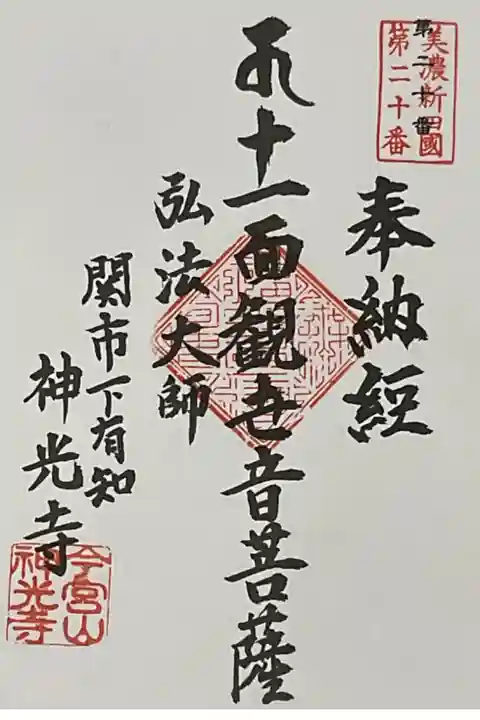 美濃新四國
第二十番
第二十番
奉納経
十一面観世音菩薩
弘法大師
関市下有知
神光寺
今宮山
神光寺